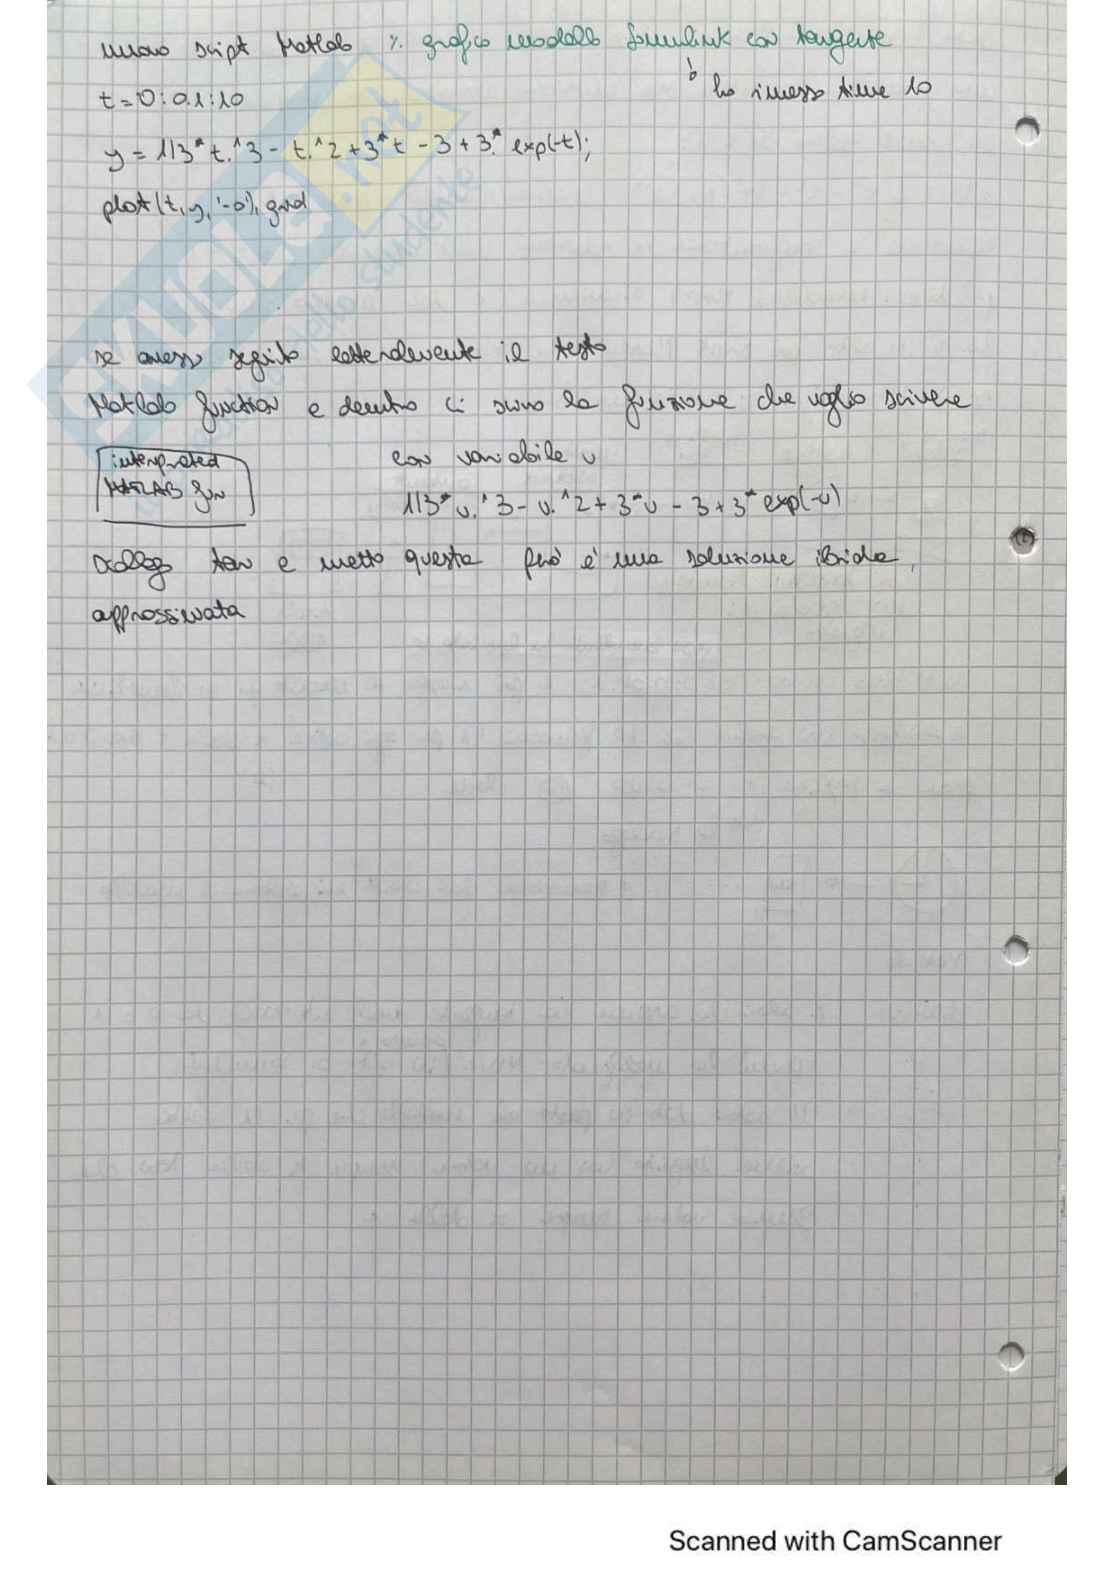 nuovo script Matlab % grafico modello Simulink con tangente
ho rimesso time 10
t=0:0.1:10
y = 1/3*t.^3 - t.^2 + 3*t - 3 + 3.* exp(-t);
plot(t,y,'-o'), grid
se avessi seguito letteralmente il testo
Matlab function e dentro ci scrivo la funzione che voglio scrivere
con variabile u
interpreted
MATLAB fun
1/3*u.^3 - u.^2 + 3*u - 3 + 3* exp(-u)
e metto questa però è una soluzione ibrida,
approssimata
SKUOLA.not
studente
Scanned with CamScanner